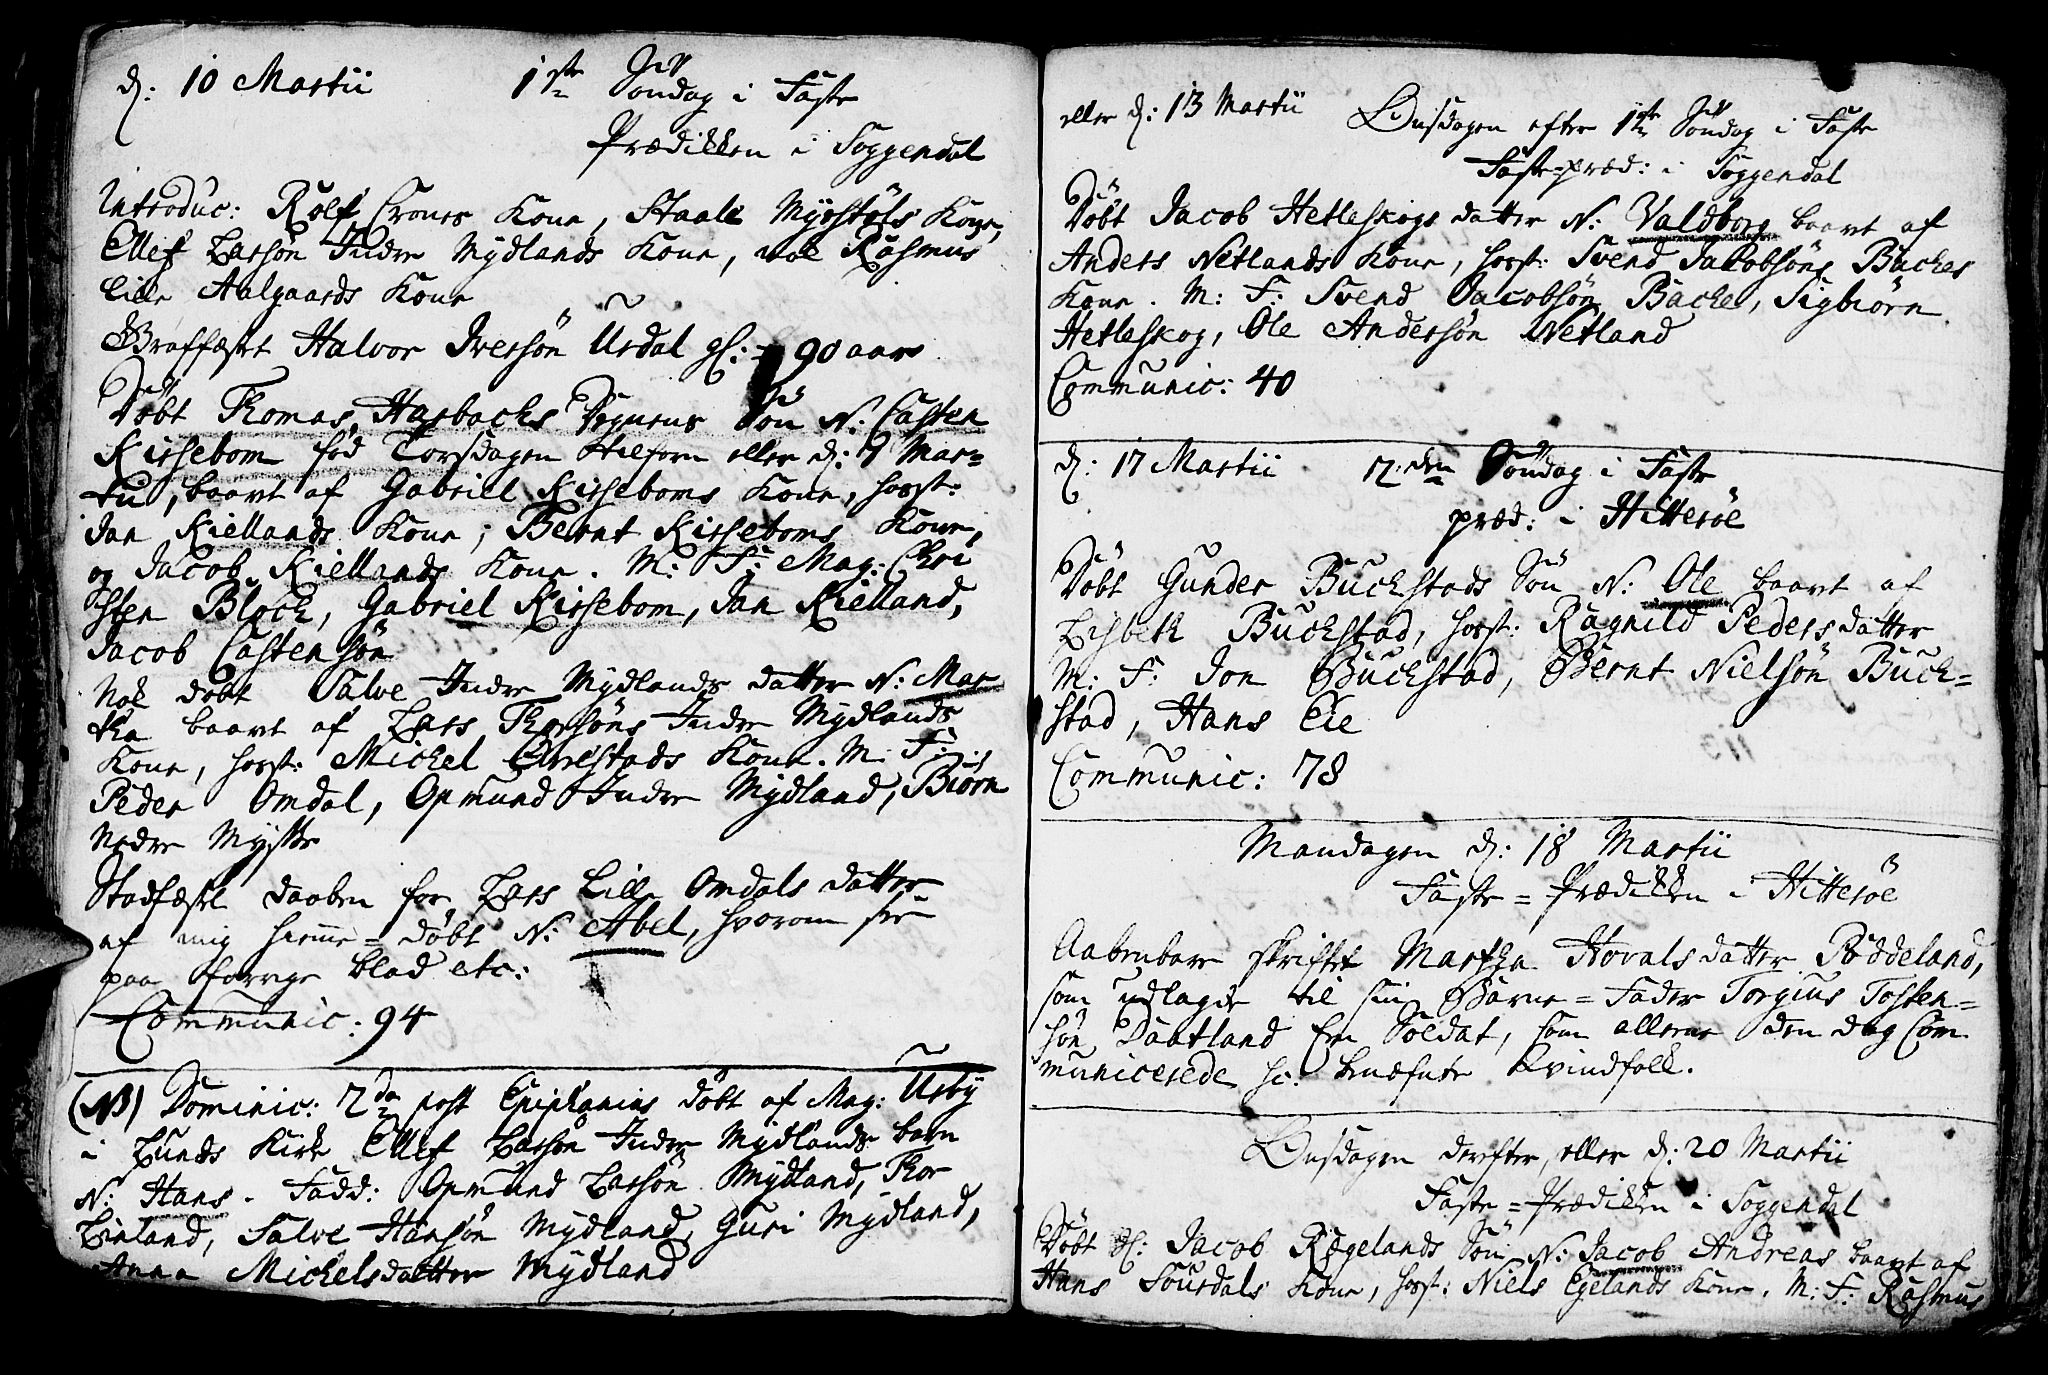 d: 10 Martii 1ste Søndag i Faste
Prædikken i Soggendal
Introduc: Rolf Crones Kone, Staale Mydstøls Kone,
Ellef Larsøn Indre Mydlands Kone, nok Rasmus
Lille Aalgaards Kone
Graffæstet Halvor Iversøn Ursdal gl: 90 aar
Døbt Thomas Harbachs Degnens Søn N: Casten
Kirsebom fød Torsdagen tilforn eller d: 7 Mar=
tii, baaret af Gabriel Kirseboms Kone, hosst:
Jan Kiellands Kone; Bernt Kirseboms Kone,
og Jacob Kiellands Kone. M: F: Mag: Chri
sten Block, Gabriel Kirsebom, Jan Kielland,
Jacob Castensøn
Nok døbt Salve Indre Mydlands datter N: Mar
tha baaret af Lars Thorsøns Indre Mydlands
Kone, hosst: Michel Ørestads Kone. M: F:
Peder Omdal, Opmund Indre Mydland, Biørn
Nedre Mysse
Stadfæstet daaben for Lars Lille Omdals datter
af mig hieme=døbt N: Abel, hvorom see
paa forrige blad etc:
Communic: 94
(NB) Dominic: 2da post Epiphanias døbt af Mag: Ursby
i Lunds Kirke Ellef Larsøn Indre Mydlands barn
N: Hans. Fadd: Opmund Larsøn Mydland, Thor
Linland, Salve Hansøn Mydland, Guri Mydland,
Anna Michelsdatter Mydland
eller d: 13 Martii Onsdagen efter 1ste Søndag i Faste
Faste=præd: i Soggendal
Døbt Jacob Hetleskogs datter N: Valdborg baaret af
Anders Netlands Kone, hosst: Svend Jacobsøns Baches
Kone. M: F: Svend Jacobsøn Bache, Sigbiørn
Hetleskog, Ole Andersøn Netland
Communic: 40
d: 17 Martii 2den Søndag i Faste
præd: i Hitterøe
Døbt Gunder Buchstads Søn N: Ole baaret af
Lisbeth Buchstad, hosst: Ragnild Pedersdatter
M: F: Jon Buchstad, Bernt Nielsøn Buch=
stad, Hans Eie
Communic: 78
Mandagen d: 18 Martii
Faste=Prædikken i Hitterøe
Aabenbare skriftet Martha Hovalsdatter Røddeland,
som udlagde til sin Barne=Fader Torgius Tosten=
søn Daatland En Soldat, som allerene den dag Com
municerede hc: bemæntr Qvindfolk.
Onsdagen derefter, eller d: 20 Martii
Faste=Prædikken i Soggendal
Døbt Sl: Jacob Rægelands Søn N: Jacob Andreas baaret af
Hans Sourdals Kone, hosst: Niels Egelands Kone. M: F: Rasmus